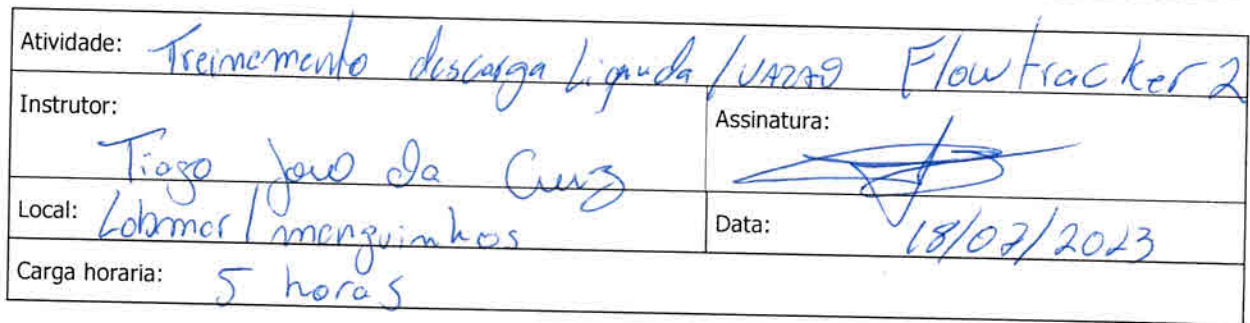 Atividade: Treinamento descarga Liquida / VAZAO Flowtracker 2
Instrutor:
Assinatura:
Tiago José da Cruz
Local: Labmar / manguinhos
Data: 18/07/2023
Carga horaria: 5 horas